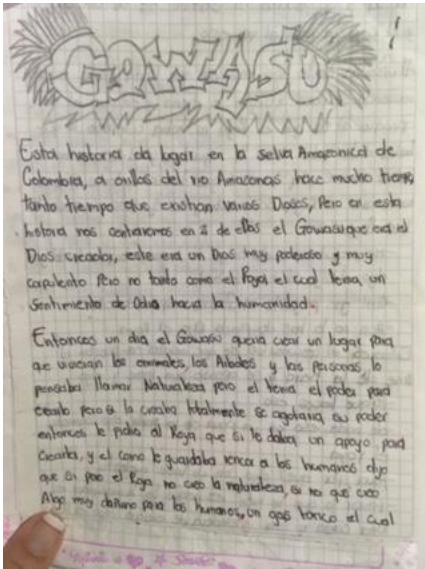 GOWASU
Esta historia da lugar en la selva Amazonica de
Colombia, a orillas del rio Amazonas hace mucho tiempo,
tanto tiempo que existian varios Dioses, Pero en esta
historia nos centraremos en 2 de ellos el Gowasu que era el
Dios creador, este era un Dios muy poderoso y muy
corpulento Pero no tanto como el Roya el cual tenia un
Sentimiento de Odio hacia la humanidad.
Entonces un dia el Gowasu queria crear un lugar para
que vivieran los animales, los Arboles y las personas, lo
pensaba llamar Naturaleza pero el tenia el poder para
crearlo pero si la creaba totalmente se agotaria su poder
entonces le pidio al Roya que si le daba un apoyo para
crearla, y el como le guardaba rencor a los humanos dijo
que si pero el Roya no creo la naturaleza, si no que creo
Algo muy dañino para los humanos, un gas toxico el cual